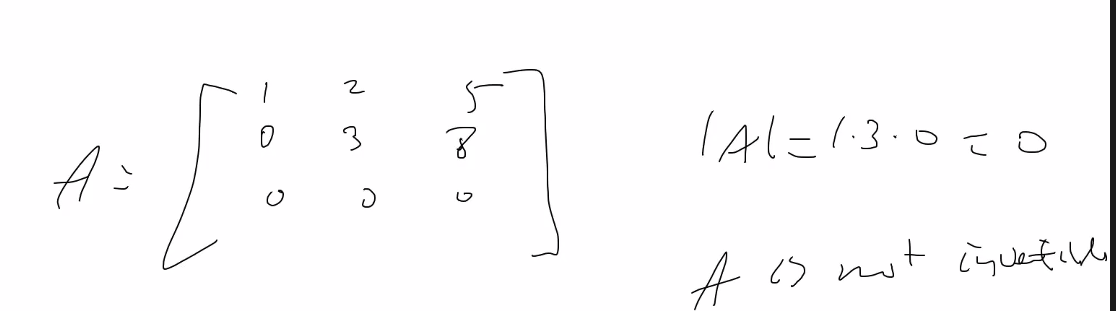 A = [ 1 2 5
0 3 8
0 0 0 ]
|A| = 1·3·0 = 0
A is not invertible